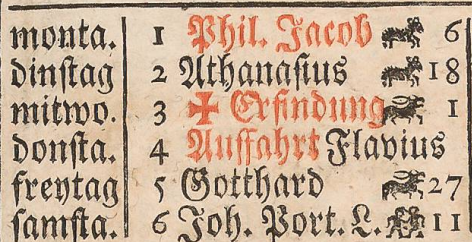 monta. 1 Phil. Jacob 6
dinstag 2 Athanasius 18
mitwo. 3 ✠ Erfindung 1
donsta. 4 Auffahrt Flavius
freytag 5 Gotthard 27
samsta. 6 Joh. Port. L. 11